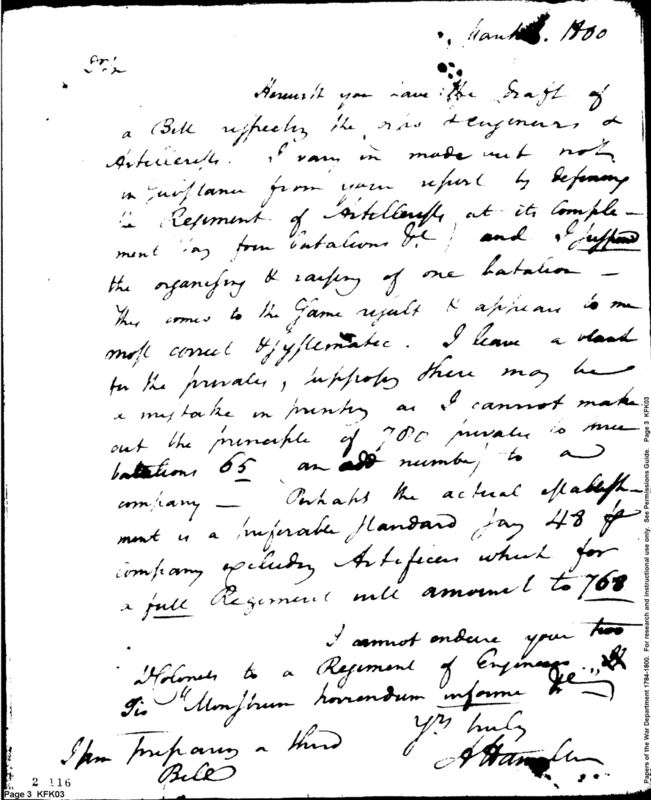 March 1800
Sir
Herewith you have the Draft of
a Bill respecting the & Engineers &
Artillerists. I vary in mode but not
in Substance from your report by defining
the Regiment of Artillerists at its comple-
ment say four batalions &c and I suppose
the organising & raising of one batalion —
This comes to the Same result & appears to me
most correct & systematic. I leave a blank
for the privates, supposing there may be
a mistake in printing as I cannot make
out the principle of 780 privates to
batalions 65 an odd number to a
company — Perhaps the actual establish-
ment is a preferable standard say 48 P
company excluding Artificers which for
a full Regiment will amount to 768
I cannot endure your two
Colonels to a Regiment of Engineers
Tis "Monstrum horrendum informe &c"
Yrs truly
A Hamilton
I am preparing a third
Bill
2 116
Page 3 KFK03
Papers of the War Department 1784-1800. For research and instructional use only. See Permissions Guide. Page 3 KFK03